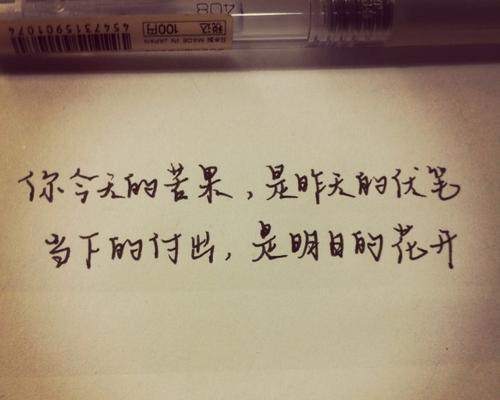 4547315901074
税込 100円
MADE IN JAPAN
你今天的苦果,是昨天的伏笔
当下的付出,是明日的花开